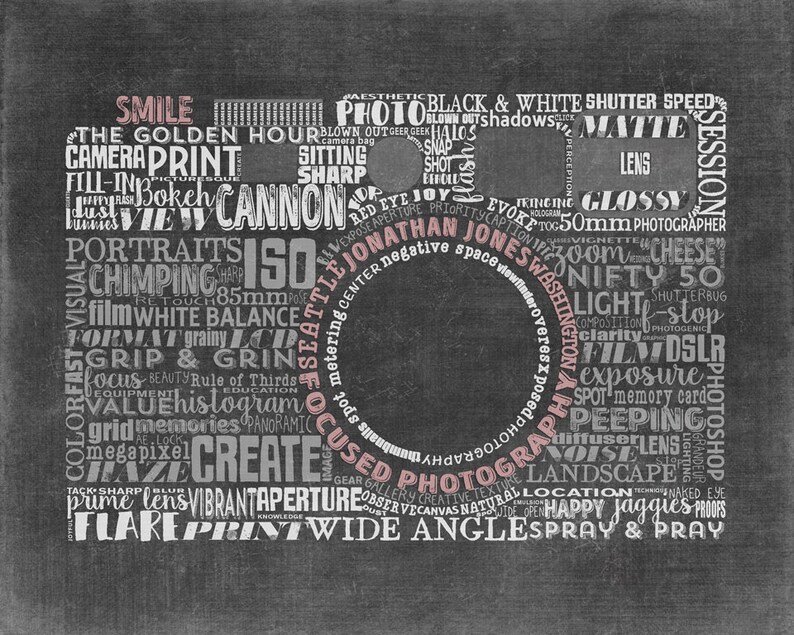 SMILE
AESTHETIC
PHOTO BLACK & WHITE SHUTTER SPEED
BLOWN OUT shadows CLICK
THE GOLDEN HOUR BLOWN OUT GEER GEEK HALOS MATTE SESSION
camera bag
CAMERA PRINT CREATE SITTING SNAP flash PERCEPTION LENS
SHARP SHOT
PICTURESQUE
FILL-IN Bokeh CANNON JOY FRINGING GLOSSY
HAPPY FLASH RED EYE EVOKE HOLOGRAM
dust bunnies VIEW TOG 50mm PHOTOGRAPHER
EXPOSE APERTURE PRIORITY CAPTION JPG
SEATTLE JONATHAN JONES WASHINGTON
FOCUSED PHOTOGRAPHY
spot metering CENTER negative space viewfinder overexposed PHOTOGRAPHY thumbnails
PORTRAITS ISO
VISUAL CHIMPING SHARP
RETOUCH 85mm POSE
film WHITE BALANCE
FORMAT grainy LCD
COLORFAST GRIP & GRIN
focus BEAUTY Rule of Thirds
EQUIPMENT EDUCATION
VALUE histogram
grid memories PANORAMIC
AE.LOCK
megapixel CREATE IMAGE
HAZE GEAR
VIGNETTE
zoom "CHEESE"
NIFTY 50
LIGHT SHUTTERBUG
COMPOSITION f-stop
PHOTOGENIC
clarity GRAPHIC
FILM DSLR
exposure PHOTOSHOP
SPOT memory card
PEEPING
diffuser LENS LIGHTING GRANDEUR
NOISE
LANDSCAPE
GALLERY CREATIVE TEXTURE
TACK SHARP BLUR VIBRANT APERTURE OBSERVE CANVAS NATURAL LOCATION TECHNIQUE NAKED EYE
prime lens KNOWLEDGE DUST SPOT WIDE OPEN EMULSION HAPPY jaggies PROOFS
JOYFUL FLARE PRINT WIDE ANGLE SPRAY & PRAY